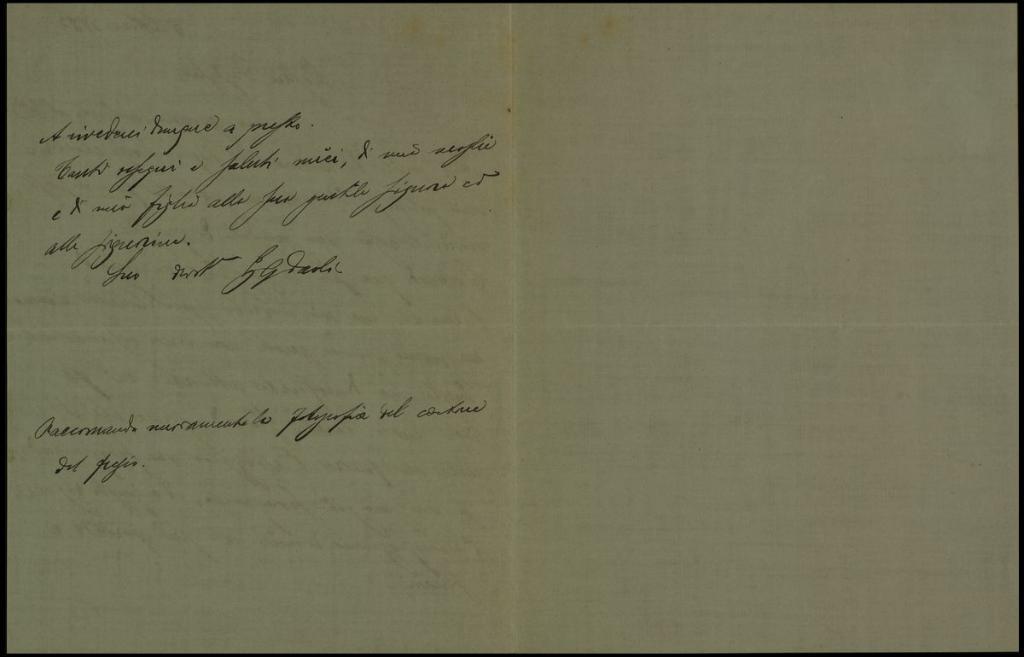 A rivederci dunque a presto.
Tanti ossequi e saluti miei, di mia moglie
e di mia figlia alla sua gentile signora ed
alla signorina.
Suo devmo
Raccomando nuovamente la fotografia del cartone
del fregio.